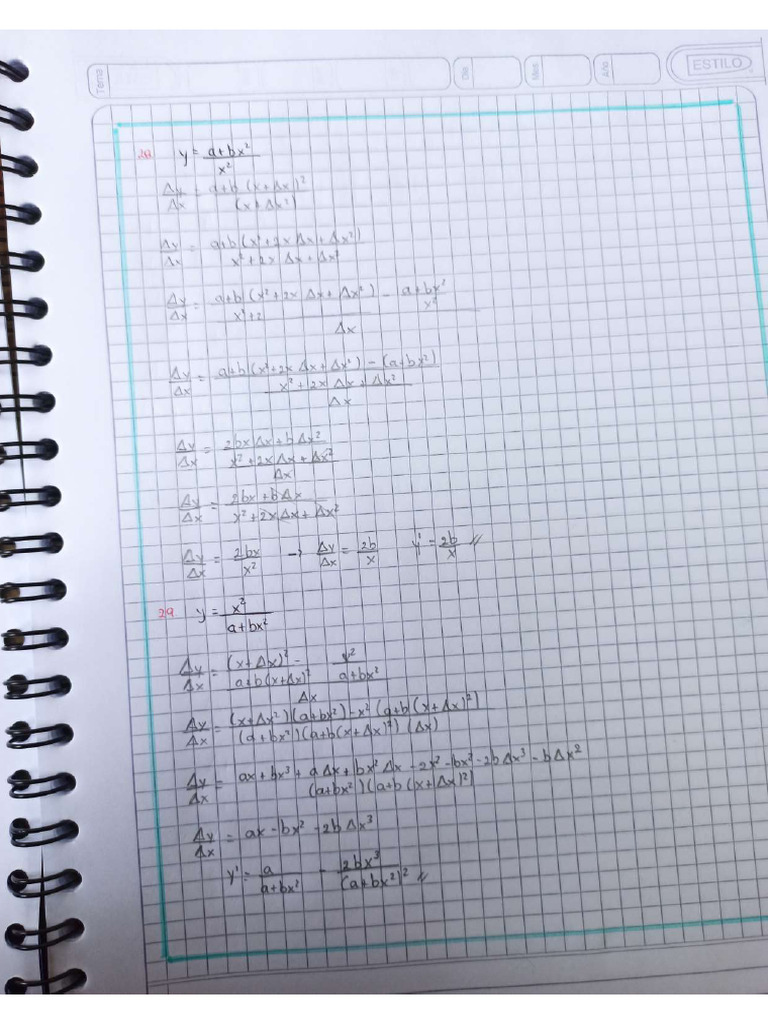 Tema Dia Mes Año ESTILO
28. y = (a+bx²)/(x²)
Δy/Δx = (a+b(x+Δx)²)/((x+Δx²))
Δy/Δx = (a+b(x²+2xΔx+Δx²))/(x²+2xΔx+Δx²)
Δy/Δx = ((a+b(x²+2xΔx+Δx²))/(x²+2) - (a+bx²)/(x²))/(Δx)
Δy/Δx = ((a+b(x²+2xΔx+Δx²) - (a+bx²))/(x²+2xΔx+Δx²))/(Δx)
Δy/Δx = ((2bxΔx+bΔx²)/(x²+2xΔx+Δx²))/(Δx)
Δy/Δx = (2bx+bΔx)/(x²+2xΔx+Δx²)
Δy/Δx = 2bx/x² → Δy/Δx = 2b/x y' = 2b/x //
29. y = x²/(a+bx²)
Δy/Δx = ((x+Δx)²/(a+b(x+Δx)²) - x²/(a+bx²))/(Δx)
Δy/Δx = ((x+Δx²)(a+bx²)-x²(a+b(x+Δx)²))/((a+bx²)(a+b(x+Δx)²)(Δx))
Δy/Δx = (ax+bx³+aΔx+bx²Δx-2x²-bx²-2bΔx³-bΔx²)/((a+bx²)(a+b(x+Δx)²))
Δy/Δx = ax-bx²-2bΔx³
y' = a/(a+bx²) - 2bx³/(a+bx²)² //